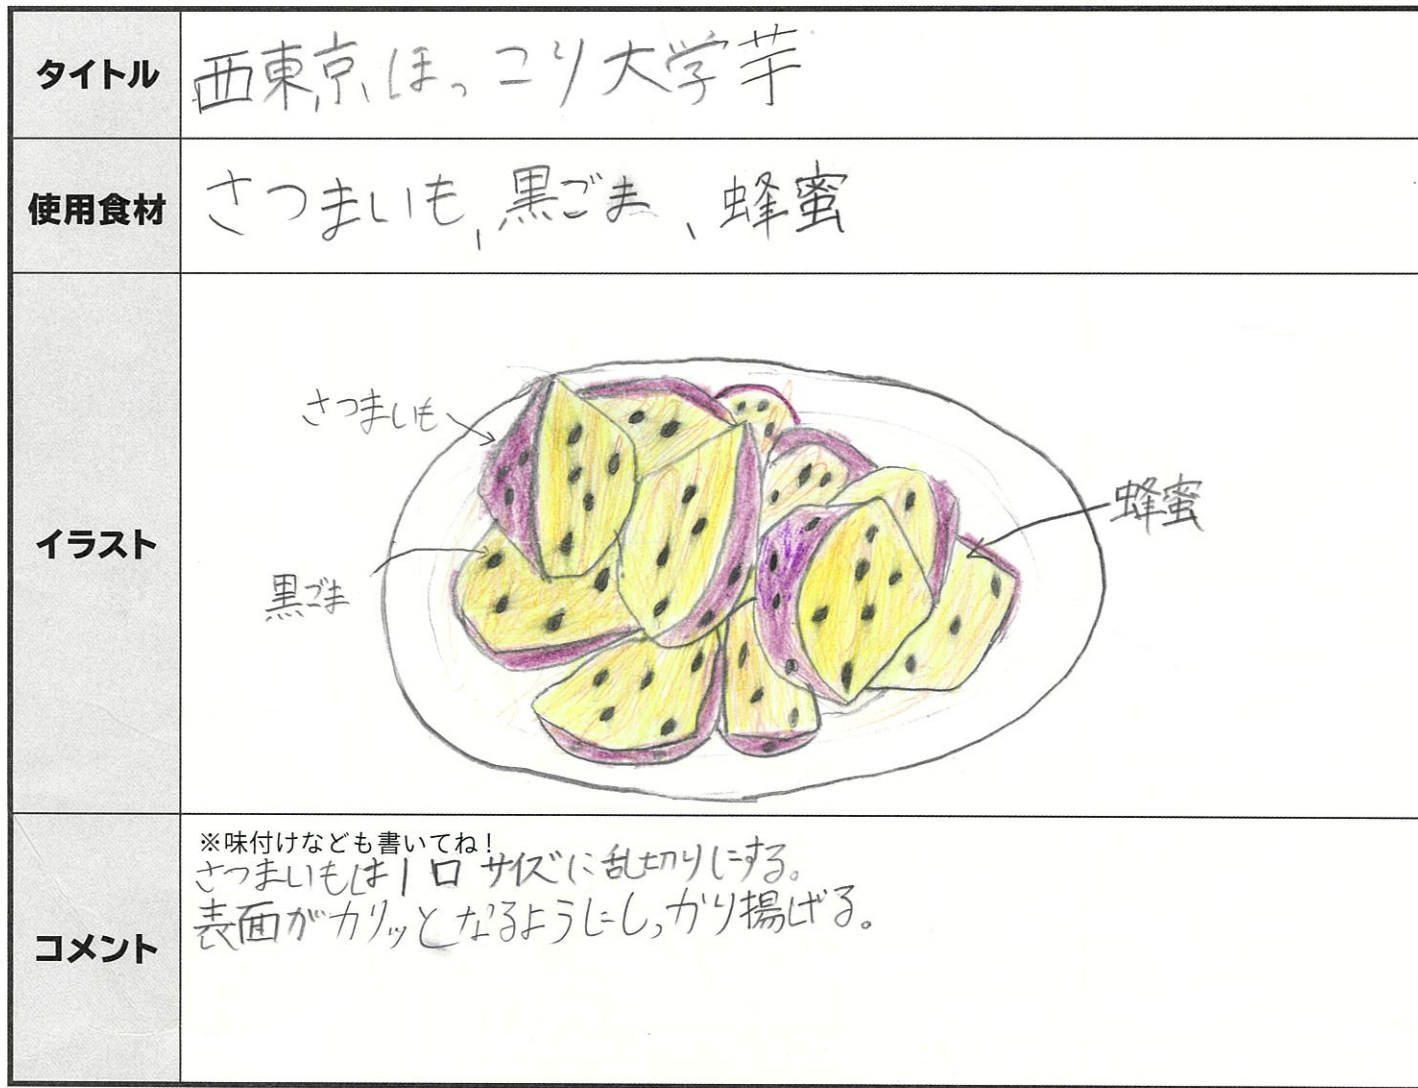 タイトル
西東京ほっこり大学芋
使用食材
さつまいも、黒ごま、蜂蜜
イラスト
さつまいも
蜂蜜
黒ごま
コメント
※味付けなども書いてね!
さつまいもは1口サイズに乱切りにする。
表面がカリッとなるようにしっかり揚げる。